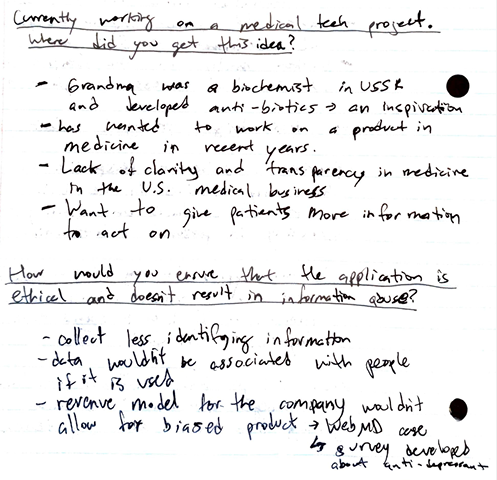 Currently working on a medical tech project.
Where did you get this idea?
- Grandma was a biochemist in USSR
and developed anti-biotics → an inspiration
- has wanted to work on a product in
medicine in recent years.
- Lack of clarity and transparency in medicine
in the U.S. medical business
- Want to give patients more information
to act on
How would you ensure that the application is
ethical and doesn't result in information abuse?
- collect less identifying information
- data wouldn't be associated with people
if it is used
- revenue model for the company wouldn't
allow for biased product → WebMD case
↳ survey developed
about anti-depressant